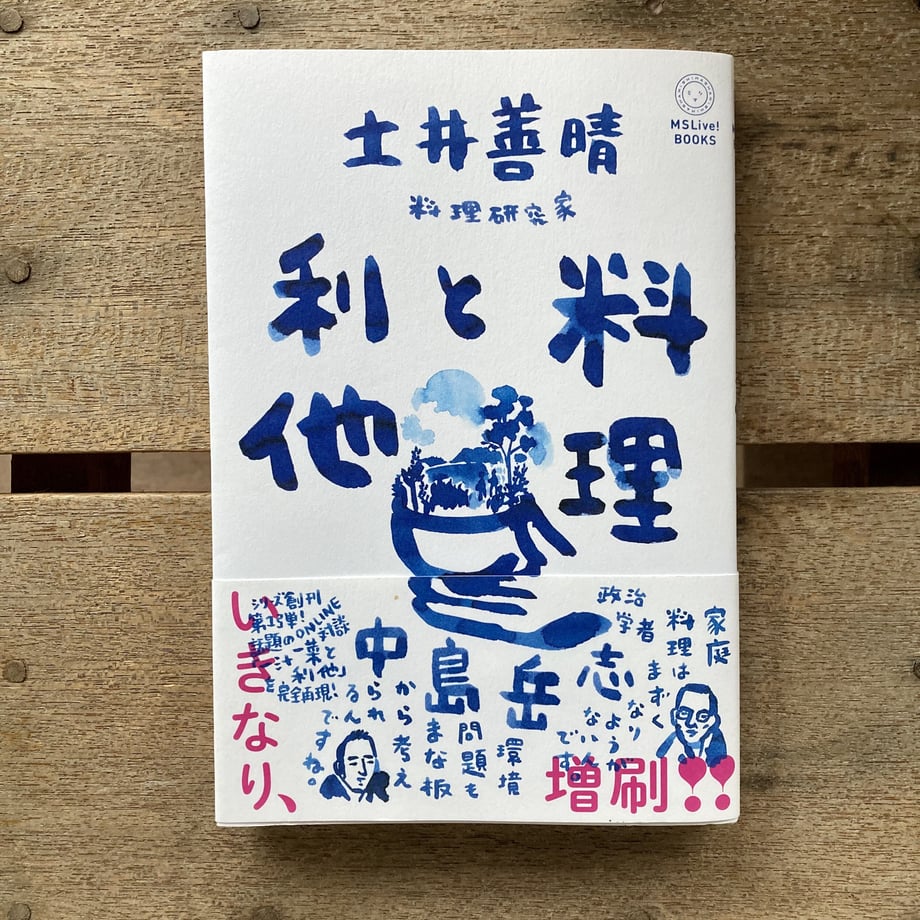 MSLive!
BOOKS
土井善晴
料理研究家
料理
と
利他
政治
学者
中島岳志
家庭
料理は
まずく
なり
ようが
ないん
です。
環境
問題も
まな板
から考え
られ
るん
ですね。
シリーズ創刊
第1弾!
話題のONLINE対談
「一汁一菜と
利他」
を完全再現!
いきなり、
増刷!!